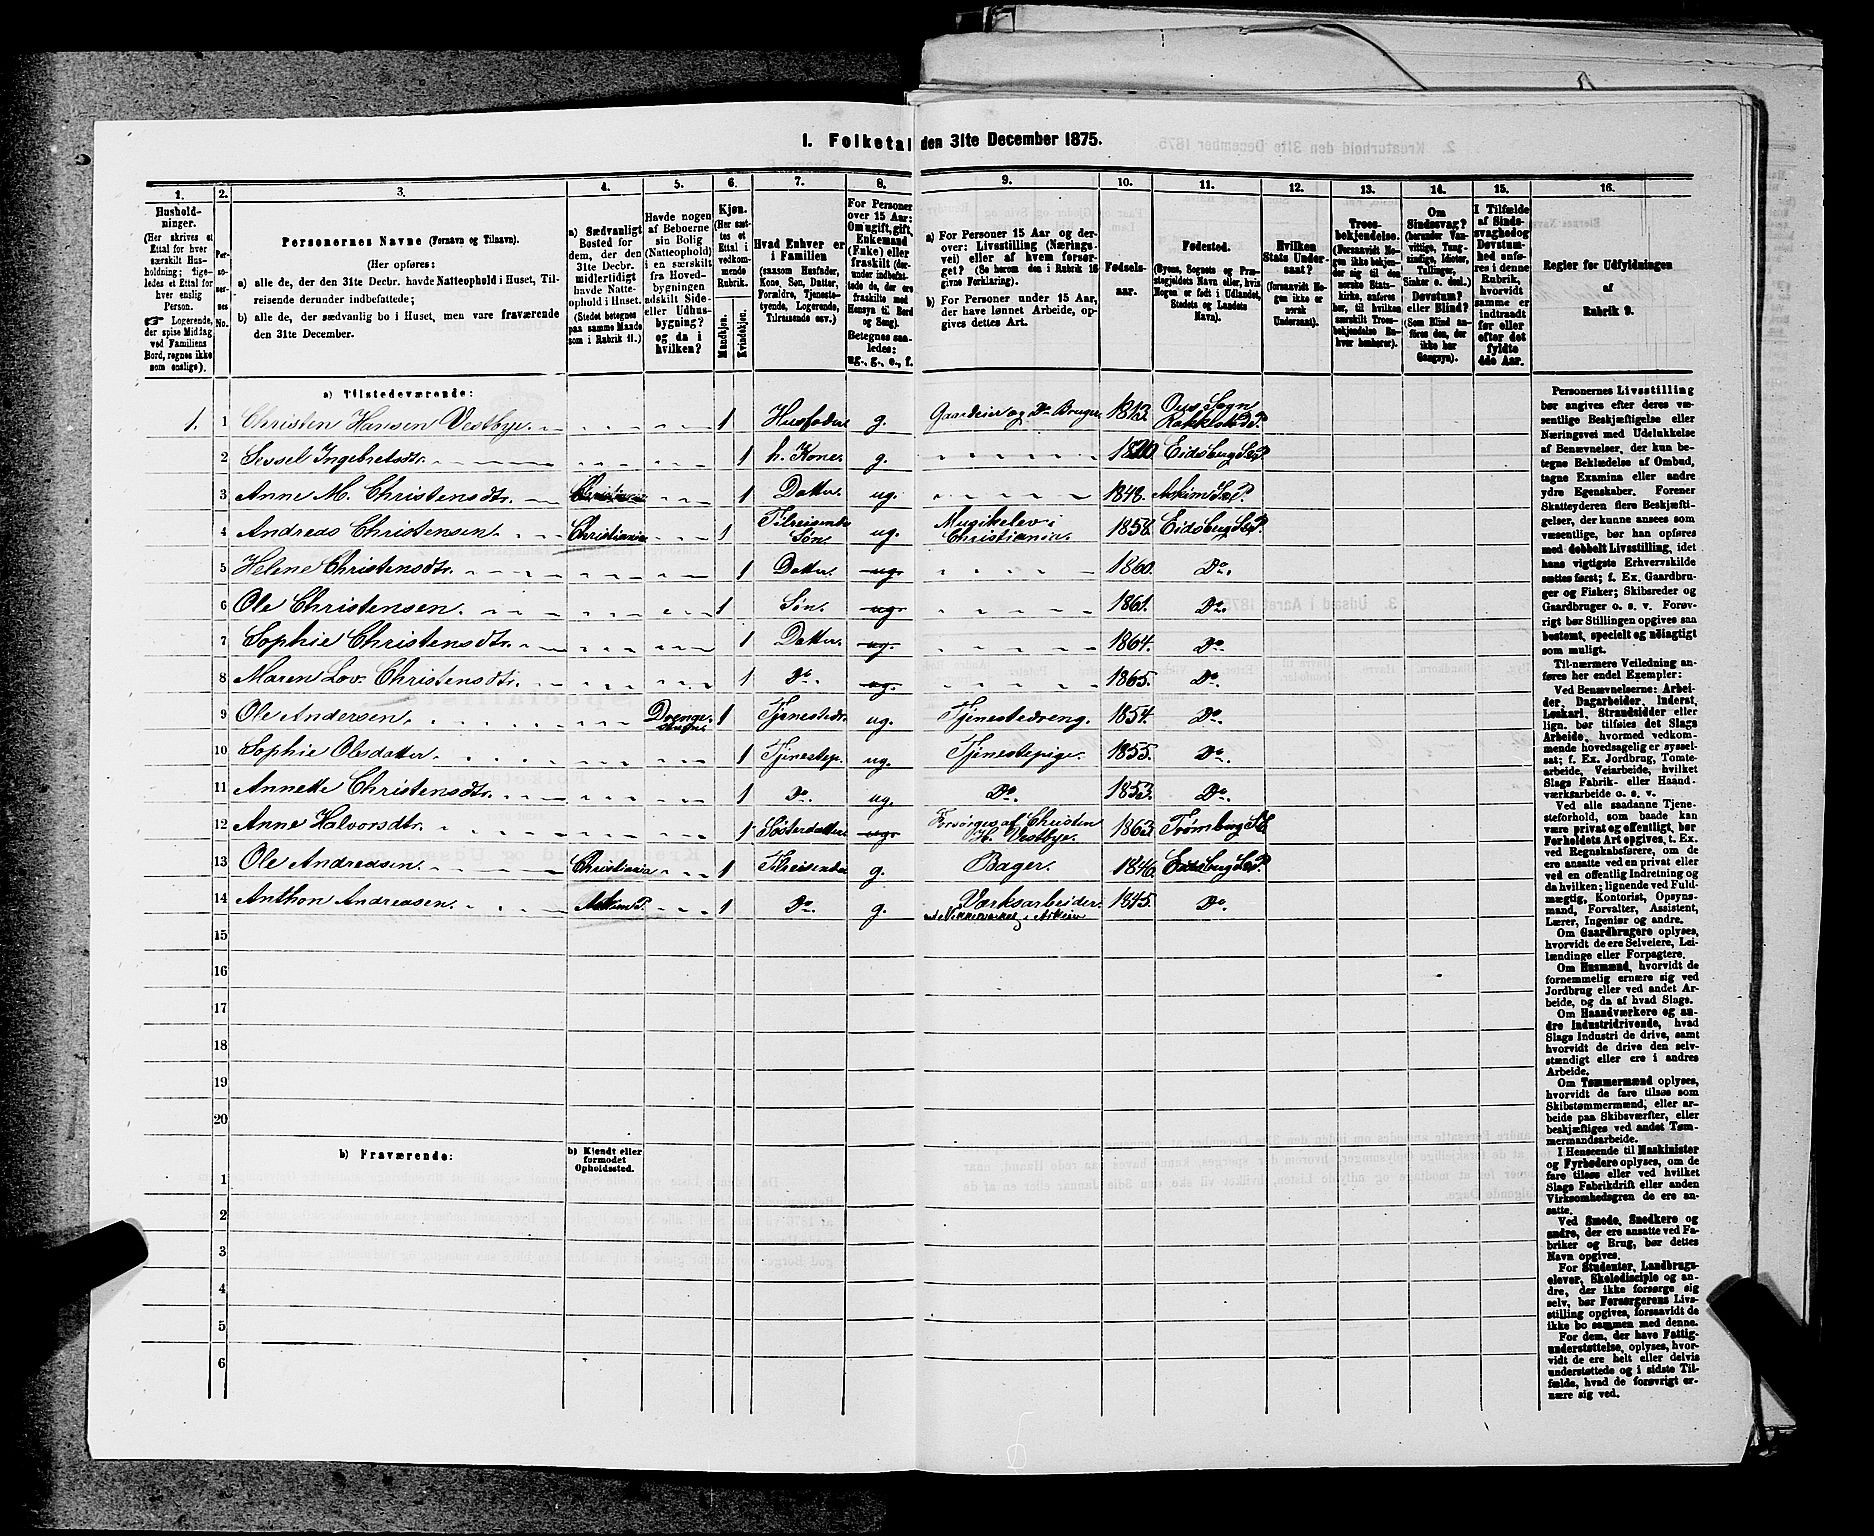 1. Folketal den 31te December 1875.
1. 2. 3. 4. 5. 6. 7. 8. 9. 10. 11. 12. 13. 14. 15. 16.
Hushold-
ninger.
(Her skrives et
Ettal for hver
særskilt Hus-
holdning; lige-
ledes et Ettal
for hver
enslig
Person.
☞ Logerende,
der spise Middag
ved Familiens
Bord, regnes ikke
som enslige).
Per-
so-
ner-
nes
No.
Personernes Navne (Fornavn og Tilnavn).
(Her opføres:
a) alle de, der den 31te Decbr. havde Natteophold i Huset, Til-
reisende derunder indbefattede;
b) alle de, der sædvanlig bo i Huset, men vare fraværende
den 31te December.
a) Sædvanligt
Bosted for
dem, der den
31te Decbr.
midlertidigt
havde Natte-
ophold i Huset.
(Stedet betegnes
paa samme Maade
som i Rubrik 11.)
Havde nogen
af Beboerne
sin Bolig
(Natteophold)
i en særskilt
fra Hoved-
bygningen
adskilt Side-
eller Udhus-
bygning?
og da i
hvilken?
Kjøn.
(Her sæt-
tes et
Ettal i
vedkom-
mende
Rubrik.
Mandkjøn.
Kvindekjøn.
Hvad Enhver er
i Familien
(saasom Husfader,
Kone, Søn, Datter,
Forældre, Tjeneste-
tyende, Logerende,
Tilreisende osv.)
For Personer
over 15 Aar:
Om ugift, gift,
Enkemand
(Enke) eller
fraskilt (der-
under indbefat-
tede de, der ere
fraskilte med
Hensyn til Bord
og Seng).
Betegnes saa-
ledes:
ug., g., e., f.
a) For Personer 15 Aar og der-
over: Livsstilling (Nærings-
vei) eller af hvem forsør-
get? (Se herom den i Rubrik 16
givne Forklaring).
b) For Personer under 15 Aar,
der have lønnet Arbeide, op-
gives dettes Art.
Fødsels-
aar.
Fødested.
(Byens, Sognets og Præ-
stegjeldets Navn eller, hvis
Nogen er født i Udlandet,
Stedets og Landets
Navn).
Hvilken
Stats Under-
saat?
(forsaavidt No-
gen ikke er
norsk
Undersaat).
Troes-
bekjendelse.
(Forsaavidt No-
gen ikke bekjen-
der sig til den
norske Stats-
kirke, anføres
her, til hvilken
særskilt Troes-
bekjendelse En-
hver henhører).
Om
Sindssvag?
(herunder Van-
vittige, Tung-
sindige, Idioter,
Tullinger,
Sinker o. desl.)
Døvstum?
eller Blind?
(Som Blind an-
føres den, der
ikke har
Gangsyn).
I Tilfælde
af Sinds-
svaghed og
Døvstum-
hed anføres
i denne
Rubrik,
hvorvidt
samme er
indtraadt
før eller
efter det
fyldte
4de Aar.
Regler for Udfyldningen
af
Rubrik 9.
a) Tilstedeværende:
1. 1 Christen Hansen Vestbye. 1 Husfader g. Gaardeier og Do Bruger 1813. Ous Sogn
Rakkelstad P.
2 Sissel Ingebretsdtr. 1 h. Kone g. 1820. Eidsberg S&P.
3 Anne M. Christensdtr. Christiania 1 Datter ug. 1848. Askim S&P.
4 Andreas Christensen. Christiania 1 Tilreisende
Søn. ug. Musikelev i
Christiania. 1858. Eidsberg S&P.
5 Helene Christensdtr. 1 Datter. ug. 1860. Do.
6 Ole Christensen. 1 Søn. ug. 1861. Do.
7 Sophie Christensdtr. 1 Datter. ug. 1864. Do.
8 Maren Lov. Christensdtr. 1 Do. ug. 1865. Do.
9 Ole Andersen. Drenge-
stuen. 1 Tjenestedr. ug. Tjenestedreng. 1854. Do.
10 Sophie Olesdatter. 1 Tjenestep. ug. Tjenestepige. 1855. Do.
11 Annette Christensdtr. 1 Do. ug. Do. 1853. Do.
12 Anne Halvorsdtr. 1 Søsterdatter ug. Forsørges af Christen
H. Vestbye. 1863. Trømborg S.
13 Ole Andreasen. Christiania 1 Tilreisende g. Bager. 1846. Eidsberg S&P.
14 Anthon Andreasen. Askim P. 1 Do. g. Værksarbeider. 1845. Do.
i Askim
15
16
17
18
19
20
b) Fraværende:
b) Kjendt eller
formodet
Opholdssted.
1
2
3
4
5
6
Personernes Livsstilling
bør angives efter deres væ-
sentlige Beskjæftigelse eller
Næringsvei med Udelukkelse
af Benævnelser, der kun be-
tegne Beklædelse af Ombud,
tagne Examina eller andre
ydre Egenskaber. Forener
Skatteyderen flere Beskjæfti-
gelser, der kunne ansees som
væsentlige, bør han opføres
med dobbelt Livsstilling, idet
hans vigtigste Erhvervskilde
sættes først; f. Ex. Gaardbru-
ger og Fisker; Skibsreder og
Gaardbruger o. s. v. Forøv-
rigt bør Stillingen opgives saa
bestemt, specielt og nøiagtigt
som muligt.
Til nærmere Veiledning an-
føres her endel Exempler:
Ved Benævnelserne: Arbei-
der, Dagarbeider, Inderst,
Løskarl, Strandsidder eller
lign. bør tilføies det Slags
Arbeide, hvormed vedkom-
mende hovedsagelig er syssel-
sat; f. Ex. Jordbrug, Tomte-
arbeide, Veiarbeide, hvilket
Slags Fabrik- eller Haand-
værksarbeide o. s. v.
Ved alle saadanne Tjene-
steforhold, som baade kan
være privat og offentligt, bør
Forholdets Art opgives, t. Ex.
ved Regnskabsførere, om de
ere ansatte ved en privat eller
ved en offentlig Indretning og
da hvilken; lignende ved Fuld-
mægtig, Kontorist, Opsyns-
mand, Forvalter, Assistent,
Lærer, Ingeniør og andre.
Om Gaardbrugere oplyses,
hvorvidt de ere Selveiere, Lei-
lændinge eller Forpagtere.
Om Husmænd, hvorvidt de
fornemmelig ernære sig ved
Jordbrug eller ved andet Ar-
beide, og da af hvad Slags.
Om Haandværkere og an-
dre Industridrivende, hvad
Slags Industri de drive, samt
hvorvidt de drive den selv-
stændigt eller ere i andres
Arbeide.
Om Tømmermænd oplyses,
hvorvidt de fare tilsøs som
Skibstømmermænd, eller ar-
beide paa Skibsværfter, eller
beskjæftiges ved andet Tøm-
mermandsarbeide.
I Henseende til Maskinister
og Fyrbødere oplyses, om de
fare tilsøs eller ved hvilket
Slags Fabrikdrift eller anden
Virksomhedsgren de ere an-
satte.
Ved Smede, Snedkere og
andre, der ere ansatte ved Fa-
briker og Brug, bør dettes
Navn opgives.
For Studenter, Landbrugs-
elever, Skoledisciple og an-
dre, der ikke forsørge sig
selv, bør Forsørgerens Livs-
stilling opgives, forsaavidt de
ikke bo sammen med denne.
For dem, der have Fattig-
understøttelse, oplyses, hvor-
vidt de ere helt eller delvis
understøttede og i sidste Til-
fælde, hvad de forøvrigt er-
nære sig ved.